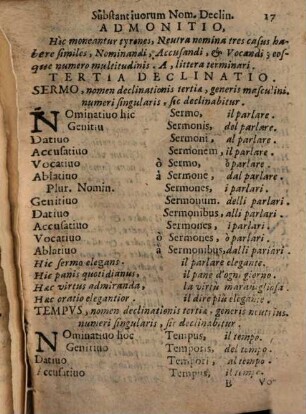 Substantiuorum Nom. Declin. 17
ADMONITIO,
Hic moneantur tyrones, Neutra nomina tres casus ha-
bere similes, Nominandi, Accusandi, & Vocandi; eos-
que numero multitudinis. A, littera terminari.
TERTIA DECLINATIO.
SERMO, nomen declinationis tertiæ, generis masculini.
numeri singularis, sic declinabitur.
Nominatiuo hic Sermo, il parlare.
Genitiu Sermonis, del parlare.
Datiuo Sermoni, al parlare.
Accusatiuo Sermonem il parlare.
Vocatiuo ò Sermo, ò parlare.
Ablatiuo à Sermone, dal parlare.
Plur. Nomin. Sermones, i parlari.
Genitiuo Sermonum. delli parlari.
Datiuo Sermonibus, alli parlari
Accusatiuo Sermones, i parlari.
Vocatiuo ò Sermones, ò parlari.
Ablatiuo à Sermonibus, dalli parlari.
Hic sermo elegans. il parlare elegante.
Hic panis quotidianus, il pane d'ogni giorno.
Hæc virtus admiranda, la virtù marauigliosa
Hæc oratio elegantior. il dire più elegante.
TEMPVS, nomen declinationis tertiæ, generis neutrius.
numeri singularis, sic declinabitur.
Nominatiuo hoc Tempus, il tempo.
Genitiuo Temporis, del tempo.
Datiuo Tempori, al tempo.
Accusatiuo Tempus, il tempo.
B Vo-